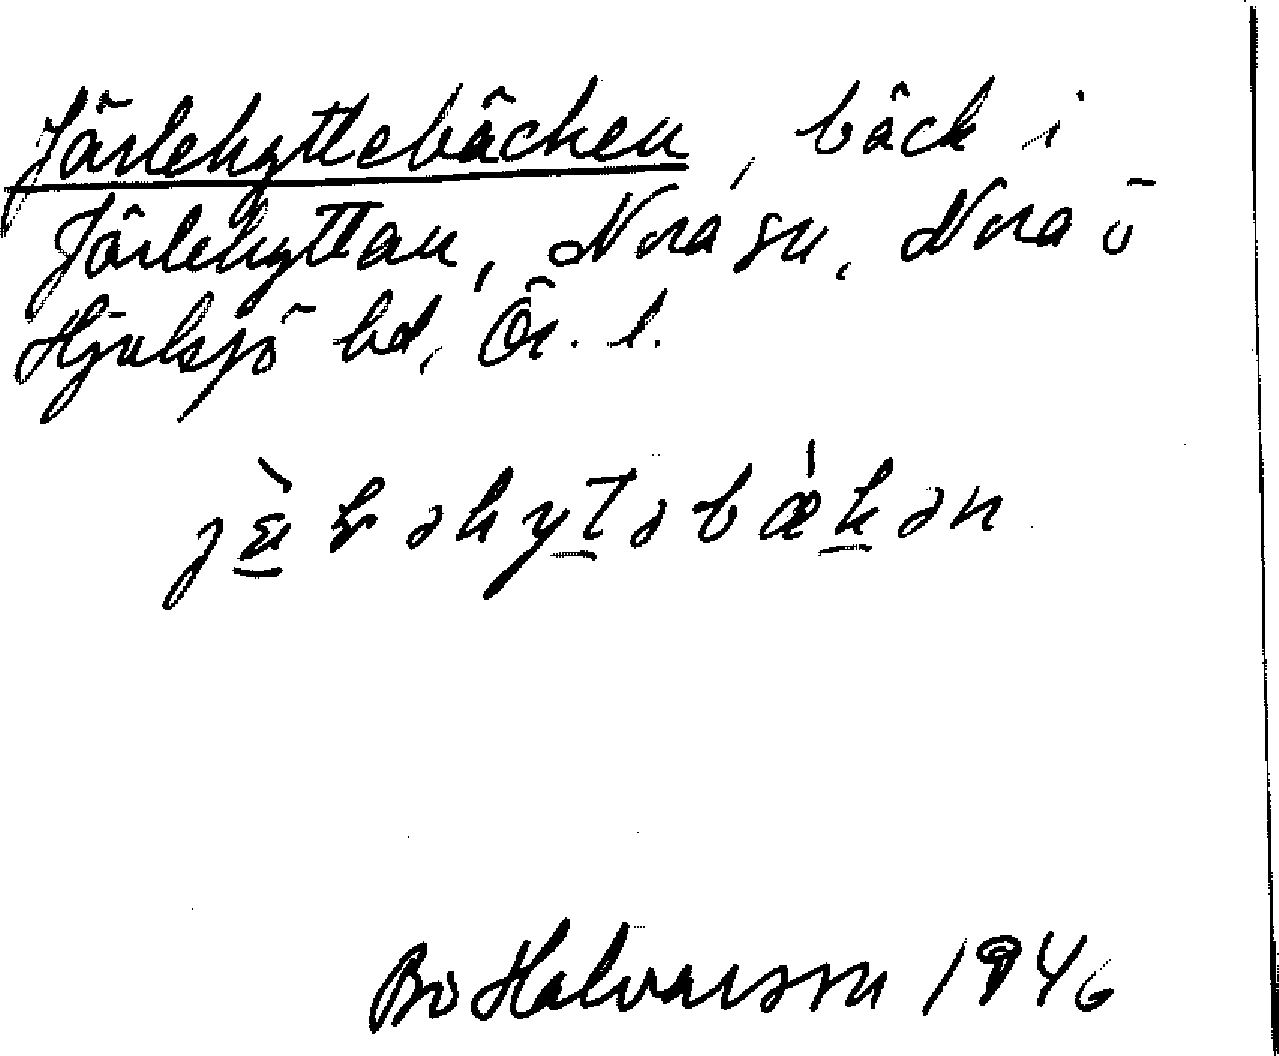 Järlehyttebäcken, bäck i
Järlehyttan, Nora sn, Nora o
Hjulsjö bd, Ör. l.
Bo Halvarsson 1946